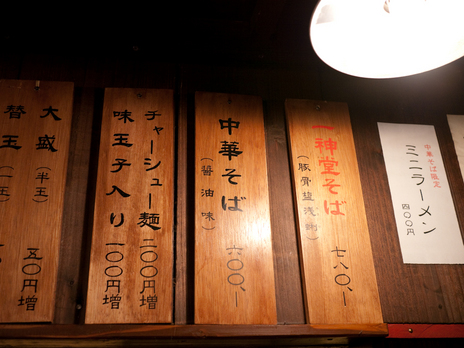 中華そば限定
ミニラーメン
四〇〇円
一神堂そば
(豚骨塩浅蜊)
七八〇、-
中華そば
(醤油味)
六〇〇、-
チャーシュー麺 二〇〇円増
味玉子入り 一〇〇円増
大盛 (半玉) 五〇円増
替玉 (一玉)